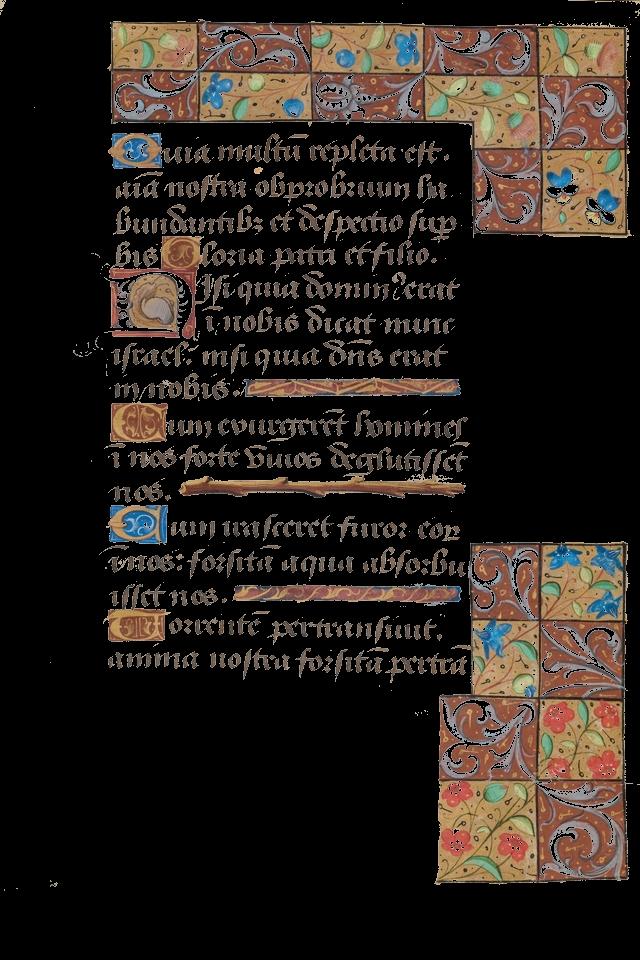 Quia multū repleta est.
aīa nostra obprobrium ha
bundantibꝫ et despectio sup
bis Gloria patri et filio.
Nisi quia dominꝰ erat
ī nobis dicat nunc
israel: nisi quia dn̄s erat
in nobis.
Cum exurgerēt homines
ī nos forte viuos deglutissēt
nos.
Cum irasceret furor eoꝝ
īnos: forsitā aqua absorbu
isset nos.
Torrentē pertransiuit,
anima nostra forsitā pertrā